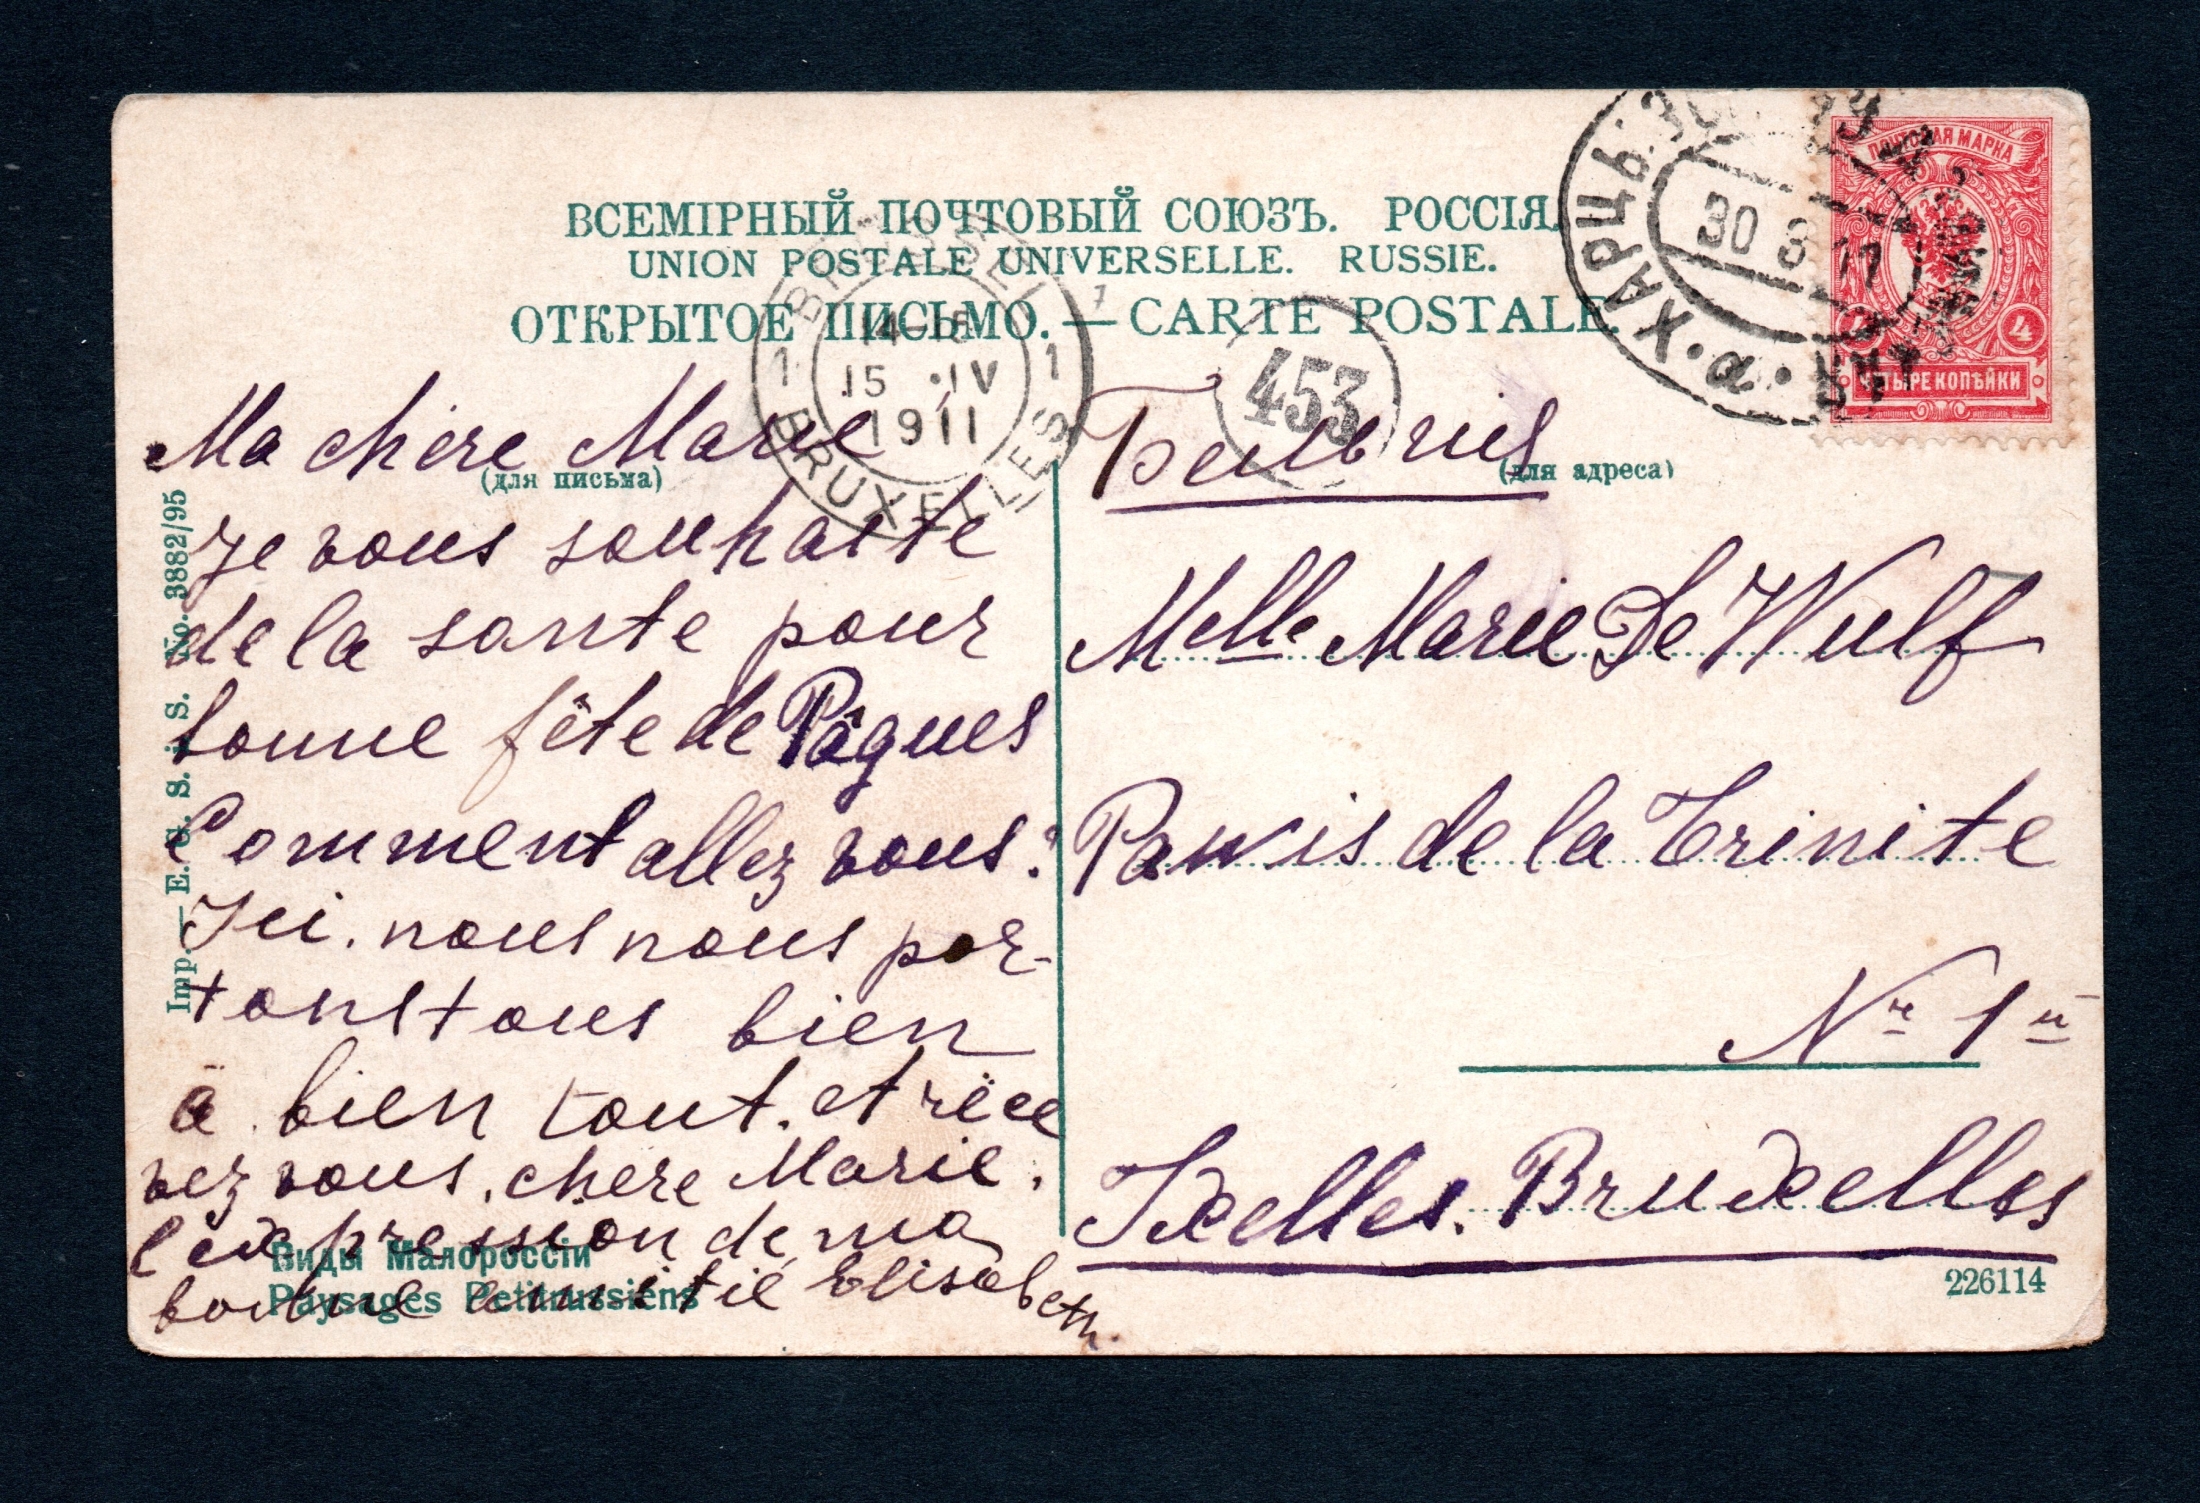 ВСЕМІРНЫЙ ПОЧТОВЫЙ СОЮЗЪ. РОССІЯ.
UNION POSTALE UNIVERSELLE. RUSSIE.
ОТКРЫТОЕ ПИСЬМО. — CARTE POSTALE.
ПОЧТОВАЯ МАРКА
4 4
ЧЕТЫРЕ КОПѢЙКИ
ХАРЦЬ
30 3 11
а
BRUSSEL
1 1
15 IV
1911
BRUXELLES
453
(для письма)
(для адреса)
Ma chère Marie
je vous souhaite
de la sante pour
bonne fête de Pâques
Comment allez vous?
Ici. nous nous por-
tons tous bien
à bien tout. et rece
vez vous, chère Marie.
l'expression de ma
bonne amitié Elisabeth.
Бельгіе
Melle Marie De Wulf
Parvis de la Trinite
Nr 1
Ixelles. Bruxelles
Imp. — E. G. S. i S. No. 3882/95
Виды Малороссіи
Paysages Petitrussiens
226114